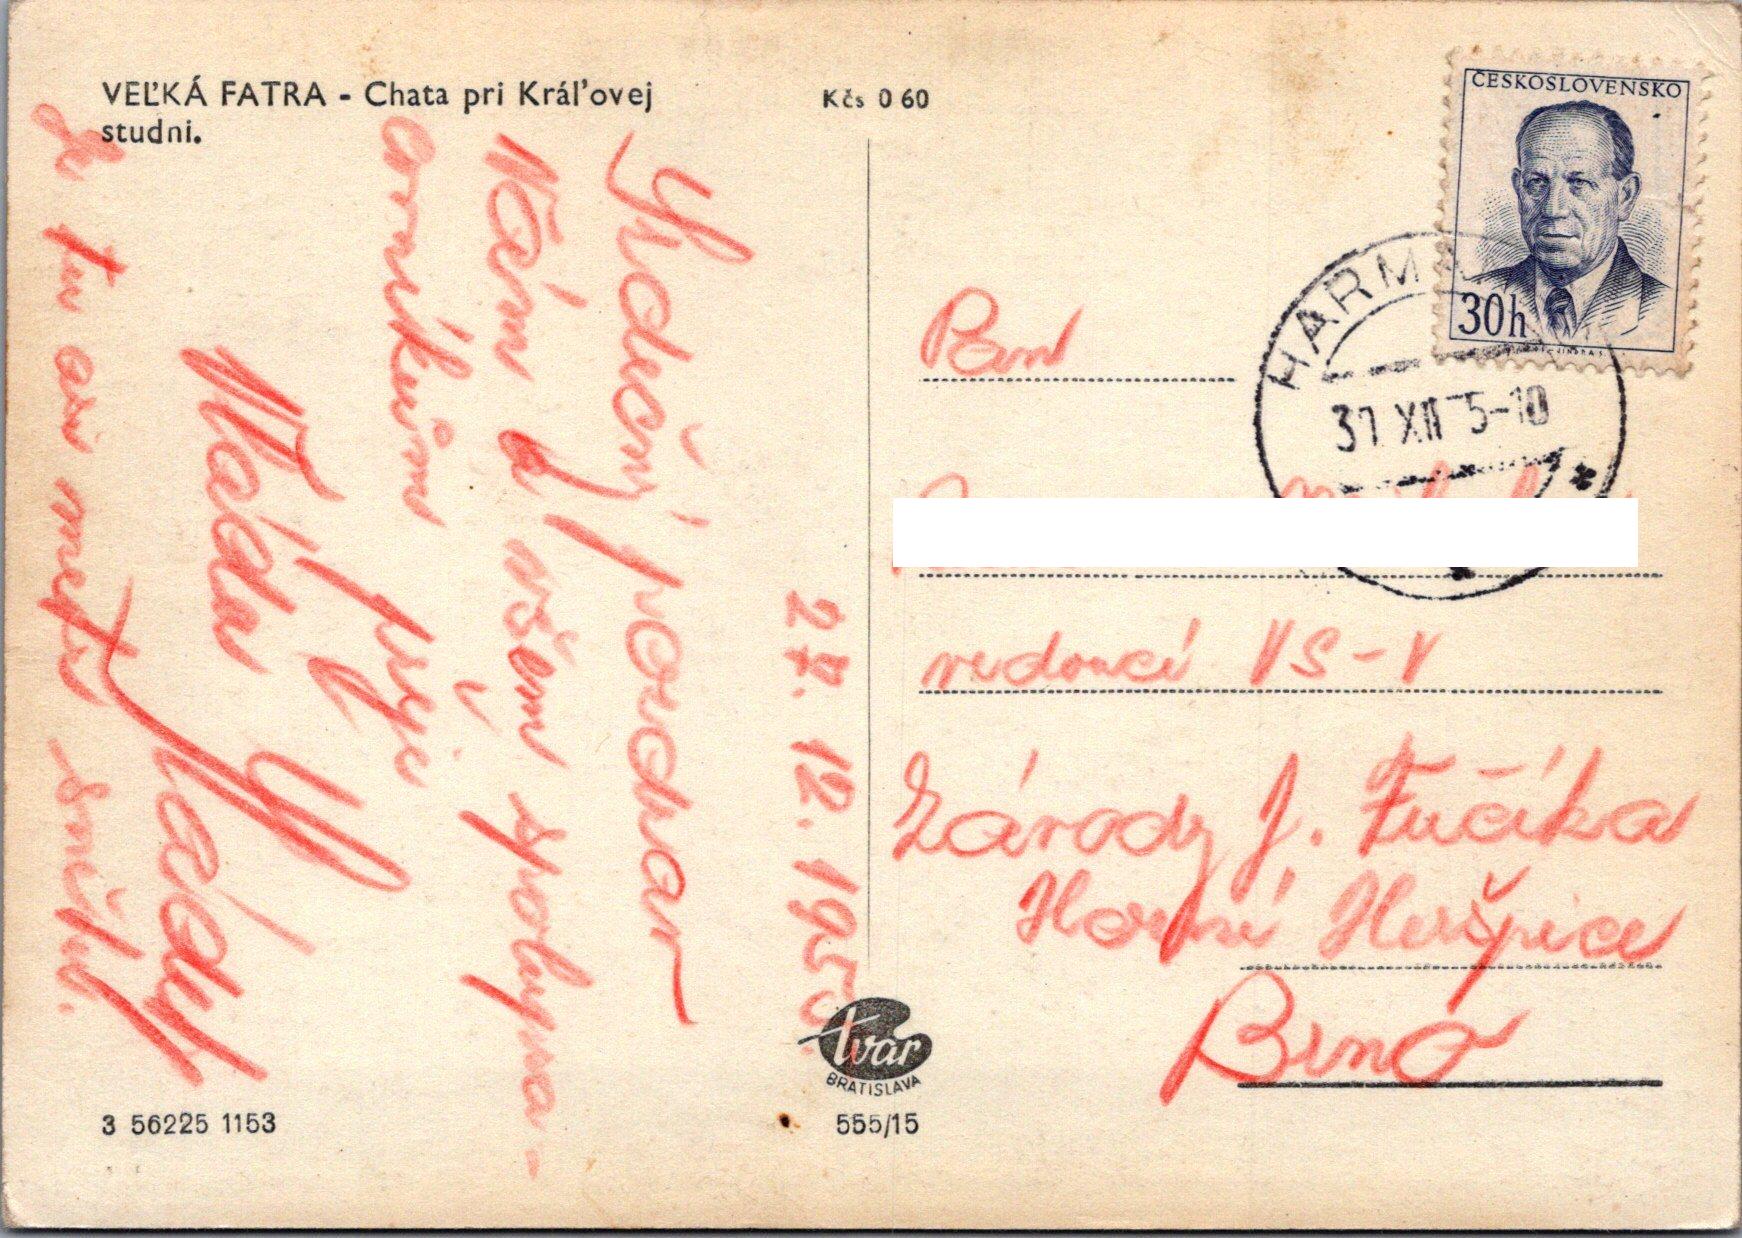 VEĽKÁ FATRA - Chata pri Kráľovej
studni.
Kčs 0 60
ČESKOSLOVENSKO
30h
HARM
31 XII 5-10
27. 12. 1955.
Srdečný pozdrav
Vám a všem spolupra-
covníkům
přeje
Váďa
Je tu asi metr
sněhu.
Pan
vedoucí VS-V
Závody J. Fučíka
Horní Heršpice
Brno
tvar
BRATISLAVA
3 56225 1153
555/15